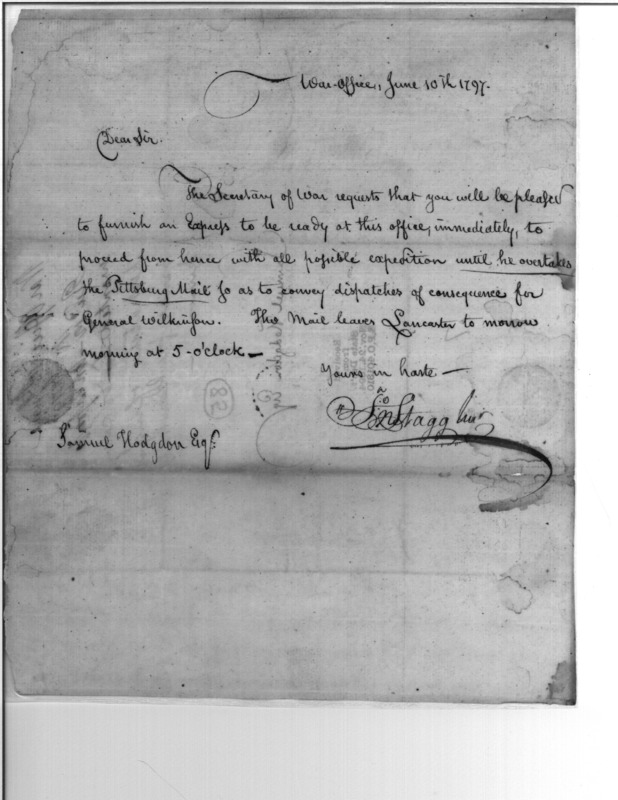 War-Office, June 10th 1797.
Dear Sir.
The Secretary of War requests that you will be pleased
to furnish an Express to be ready at this office, immediately, to
proceed from hence with all possible expedition until he overtakes
the Pittsburg Mail so as to convey dispatches of consequence for
General Wilkinson. The Mail leaves Lancaster to morrow
morning at 5-o'clock—
Yours in haste—
Jno Stagg Junr
Samuel Hodgdon Esqr
85